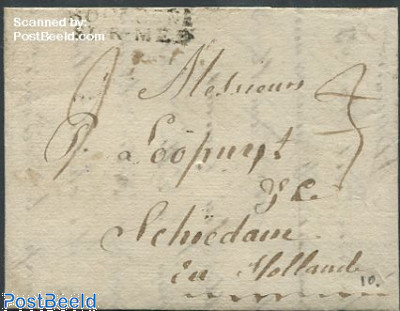 Scanned by:
PostBeeld.com
R-MER
Messieurs
P. Loopuyt
& C
Schiedam
En Holland
10.
PostBeeld